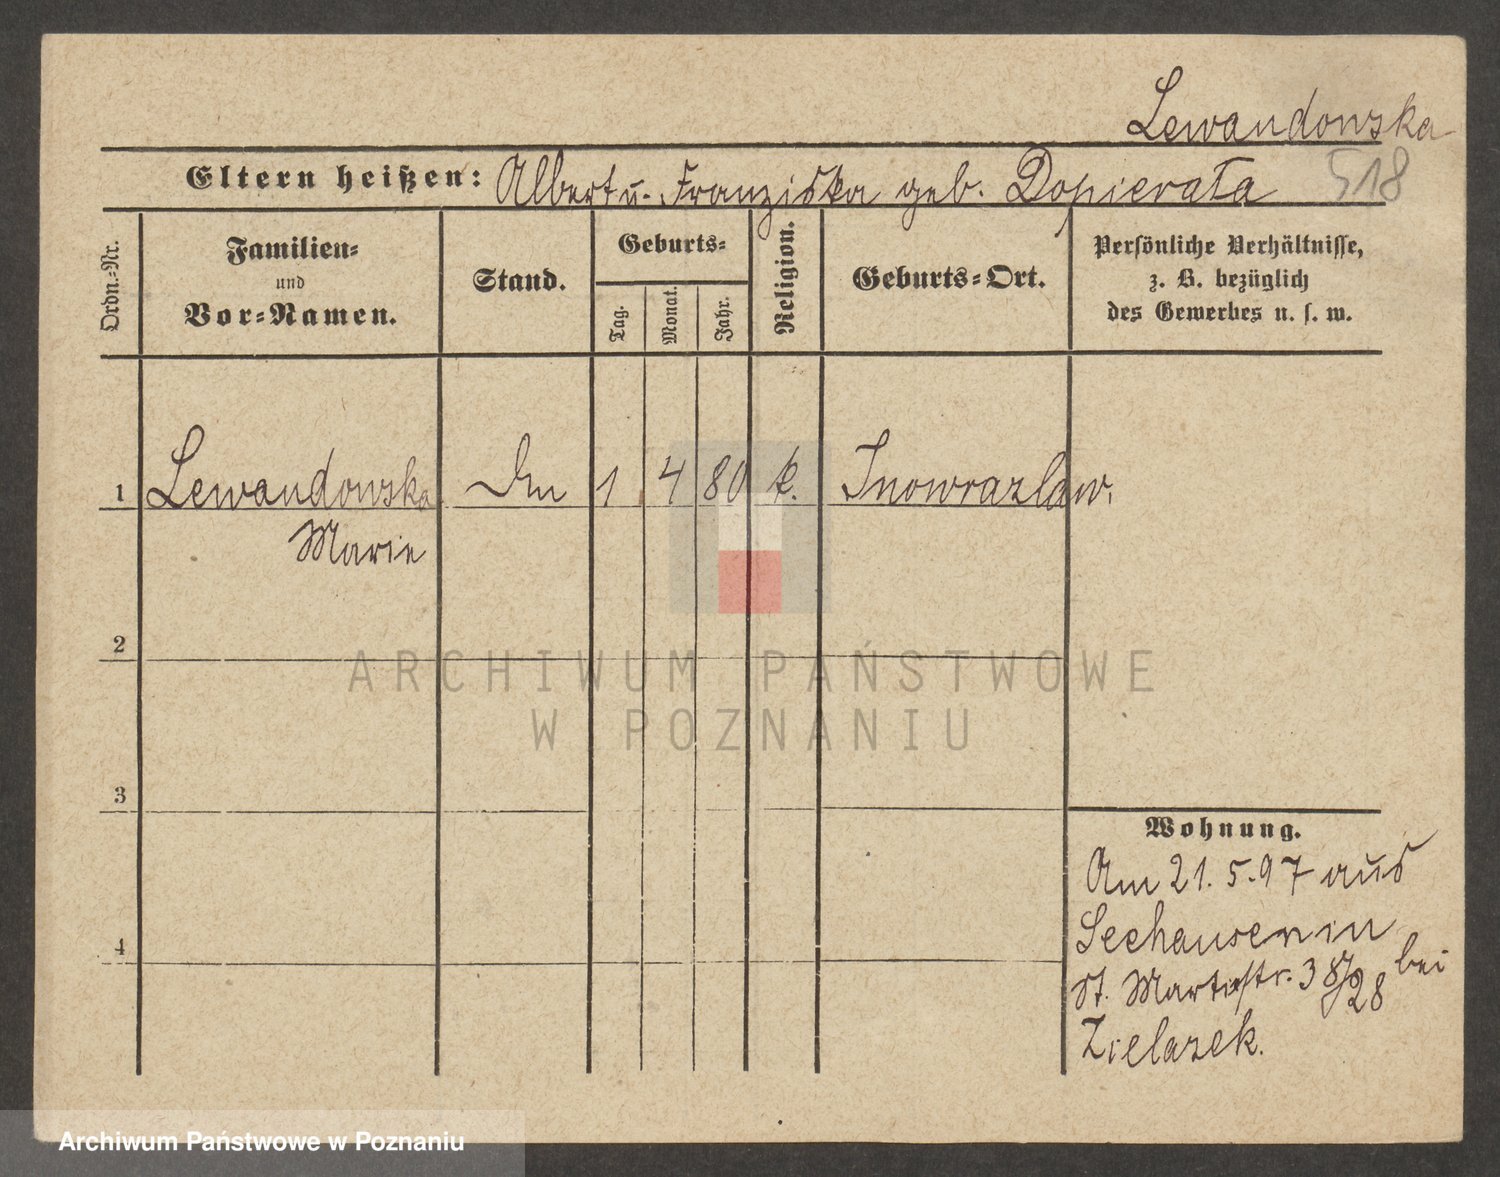 Lewandowska
518
Eltern heißen: Albert u. Franziska geb. Dopierała
Ordn.-Nr.
Familien-
und
Vor-Namen.
Stand.
Geburts-
Tag.
Monat.
Jahr.
Religion.
Geburts-Ort.
Persönliche Verhältnisse,
z. B. bezüglich
des Gewerbes u. s. w.
1 Lewandowska 1 4 80 k. Inowrazlaw.
Marie
2
ARCHIWUM PAŃSTWOWE
W POZNANIU
3
Wohnung.
Am 21. 5. 97 aus
Seehausen in
4
St. Martinstr. 38/28 bei
Zielazek.
Archiwum Państwowe w Poznaniu